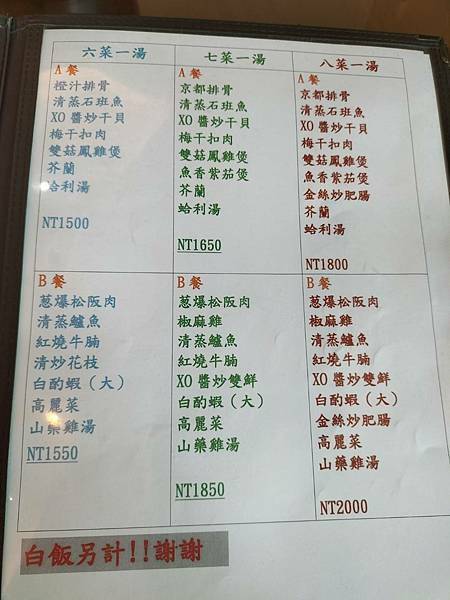 六菜一湯
七菜一湯
八菜一湯
A餐
橙汁排骨
清蒸石班魚
XO醬炒干貝
梅干扣肉
雙菇鳳雞煲
芥蘭
蛤利湯
NT1500
A餐
京都排骨
清蒸石班魚
XO醬炒干貝
梅干扣肉
雙菇鳳雞煲
魚香紫茄煲
芥蘭
蛤利湯
NT1650
A餐
京都排骨
清蒸石班魚
XO醬炒干貝
梅干扣肉
雙菇鳳雞煲
魚香紫茄煲
金絲炒肥腸
芥蘭
蛤利湯
NT1800
B餐
蔥爆松阪肉
清蒸鱸魚
紅燒牛腩
清炒花枝
白酌蝦（大）
高麗菜
山藥雞湯
NT1550
B餐
蔥爆松阪肉
椒麻雞
清蒸鱸魚
紅燒牛腩
XO醬炒雙鮮
白酌蝦（大）
高麗菜
山藥雞湯
NT1850
B餐
蔥爆松阪肉
椒麻雞
清蒸鱸魚
紅燒牛腩
XO醬炒雙鮮
白酌蝦（大）
金絲炒肥腸
高麗菜
山藥雞湯
NT2000
白飯另計!!謝謝